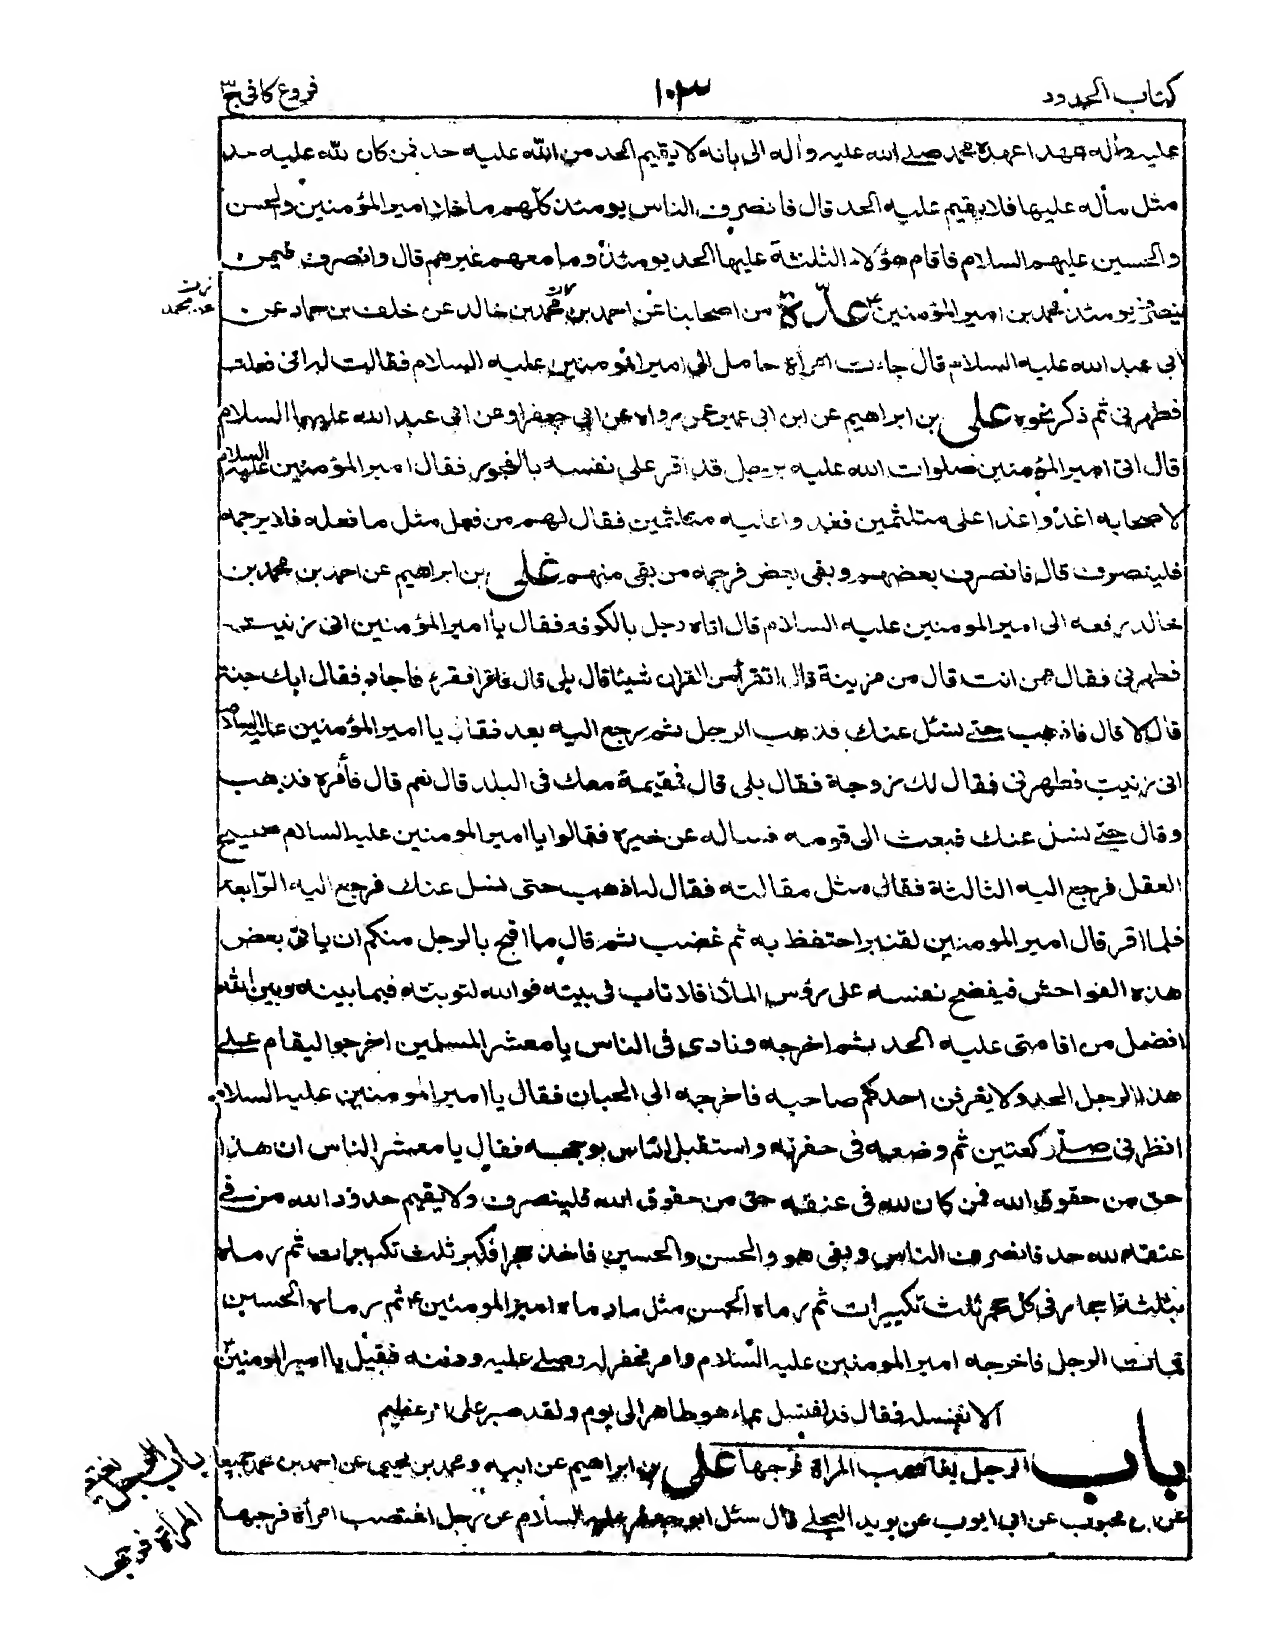 كتاب الحدود
١٠٣
فروع كافي ج٣
عليه وآله عهدا عهده محمد صلى الله عليه وآله الى بانه لا يقيم الحد من الله عليه حد فمن كان لله عليه حد
مثل ماله عليها فلا يقيم عليه الحد قال فانصرف الناس يومئذ كلهم ما خلا امير المؤمنين والحسن
والحسين عليهم السلام فاقام هؤلاء الثلثة عليها الحد يومئذ وما معهم غيرهم قال وانصرف فيمن
ينصرف يومئذ محمد بن امير المؤمنين ع عدّة من اصحابنا عن احمد بن محمد بن خالد عن خلف بن حماد عن
ابى عبد الله عليه السلام قال جاءت امرأة حامل الى امير المؤمنين عليه السلام فقالت له انى فعلت
فطهرنى ثم ذكر نحوه على بن ابراهيم عن ابن ابى عمير عمن رواه عن ابى جعفر او عن ابى عبد الله عليهما السلام
قال اتى امير المؤمنين صلوات الله عليه برجل قد اقر على نفسه بالفجور فقال امير المؤمنين عليه السلام
لاصحابه اغدوا غدا على متلثمين فغدوا عليه متلثمين فقال لهم من فعل مثل ما فعله فلا يرجمه
فلينصرف قال فانصرف بعضهم وبقى بعض فرجمه من بقى منهم على بن ابراهيم عن احمد بن محمد بن
خالد رفعه الى امير المومنين عليه السلام قال اتاه رجل بالكوفه فقال يا امير المؤمنين انى زنيت
فطهرنى فقال ممن انت قال من مزينة قال اتقرأ من القران شيئا قال بلى قال فاقرا فقرء فاجاد فقال ابك جنة
قال لا قال فاذهب حتى نسئل عنك فذهب الرجل ثم رجع اليه بعد فقال يا امير المؤمنين عليه السلام
انى زنيت فطهرنى فقال لك زوجة فقال بلى قال فمقيمة معك فى البلد قال نعم قال فأمره فذهب
وقال حتى نسئل عنك فبعث الى قومه فساله عن خبره فقالوا يا امير المومنين عليه السلام صحيح
العقل فرجع اليه الثالثة فقال مثل مقالته فقال له اذهب حتى نسئل عنك فرجع اليه الرّابعة
فلما اقر قال امير المومنين لقنبر احتفظ به ثم غضب ثم قال ما اقبح بالرجل منكم ان ياتى بعض
هذه الفواحش فيفضح نفسه على رؤس الملأ افلا تاب فى بيته فوالله لتوبته فيما بينه وبين الله
افضل من اقامتى عليه الحد ثم اخرجه ونادى فى الناس يا معشر المسلمين اخرجوا ليقام على
هذا الرجل الحد ولا يعرفن احدكم صاحبه فاخرجه الى الجبان فقال يا امير المومنين عليه السلام
انظرنى صلى ركعتين ثم وضعه فى حفرته واستقبل الناس بوجهه فقال يا معشر الناس ان هذا
حق من حقوق الله فمن كان لله فى عنقه حق من حقوق الله فلينصرف ولا يقيم حدود الله من فى
عنقه لله حد فانصرف الناس وبقى هو والحسن والحسين فاخذ حجرا فكبر ثلث تكبيرات ثم رماه
بثلثة احجار فى كل حجر ثلث تكبيرات ثم رماه الحسن مثل ما رماه امير المومنين ع ثم رماه الحسين
فمات الرجل فاخرجه امير المومنين عليه السّلام وامر فحفر له وصلى عليه ودفنه فقيل يا امير المومنين
الا تغسله فقال قد اغتسل بماء هو طاهر الى يوم ولقد صبر على امر عظيم
باب الرجل يغتصب المرأة فرجها على بن ابراهيم عن ابيه ومحمد بن يحيى عن احمد بن محمد جميعا
عن ابن محبوب عن ابى ايوب عن بريد العجلى قال سئل ابو جعفر عليه السلام عن رجل اغتصب امرأة فرجها
باب الرجل يغتصب
المرأة فرجها